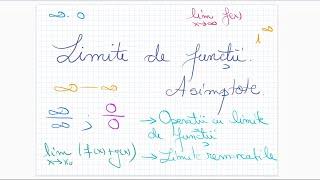 ∞·0
lim f(x)
x→∞
1^∞
Limite de funcții.
Asimptote.
∞−∞
∞/∞ ; 0/0
→Operații cu limite de funcții
lim (f(x)+g(x))
x→x₀
→Limite remarcabile